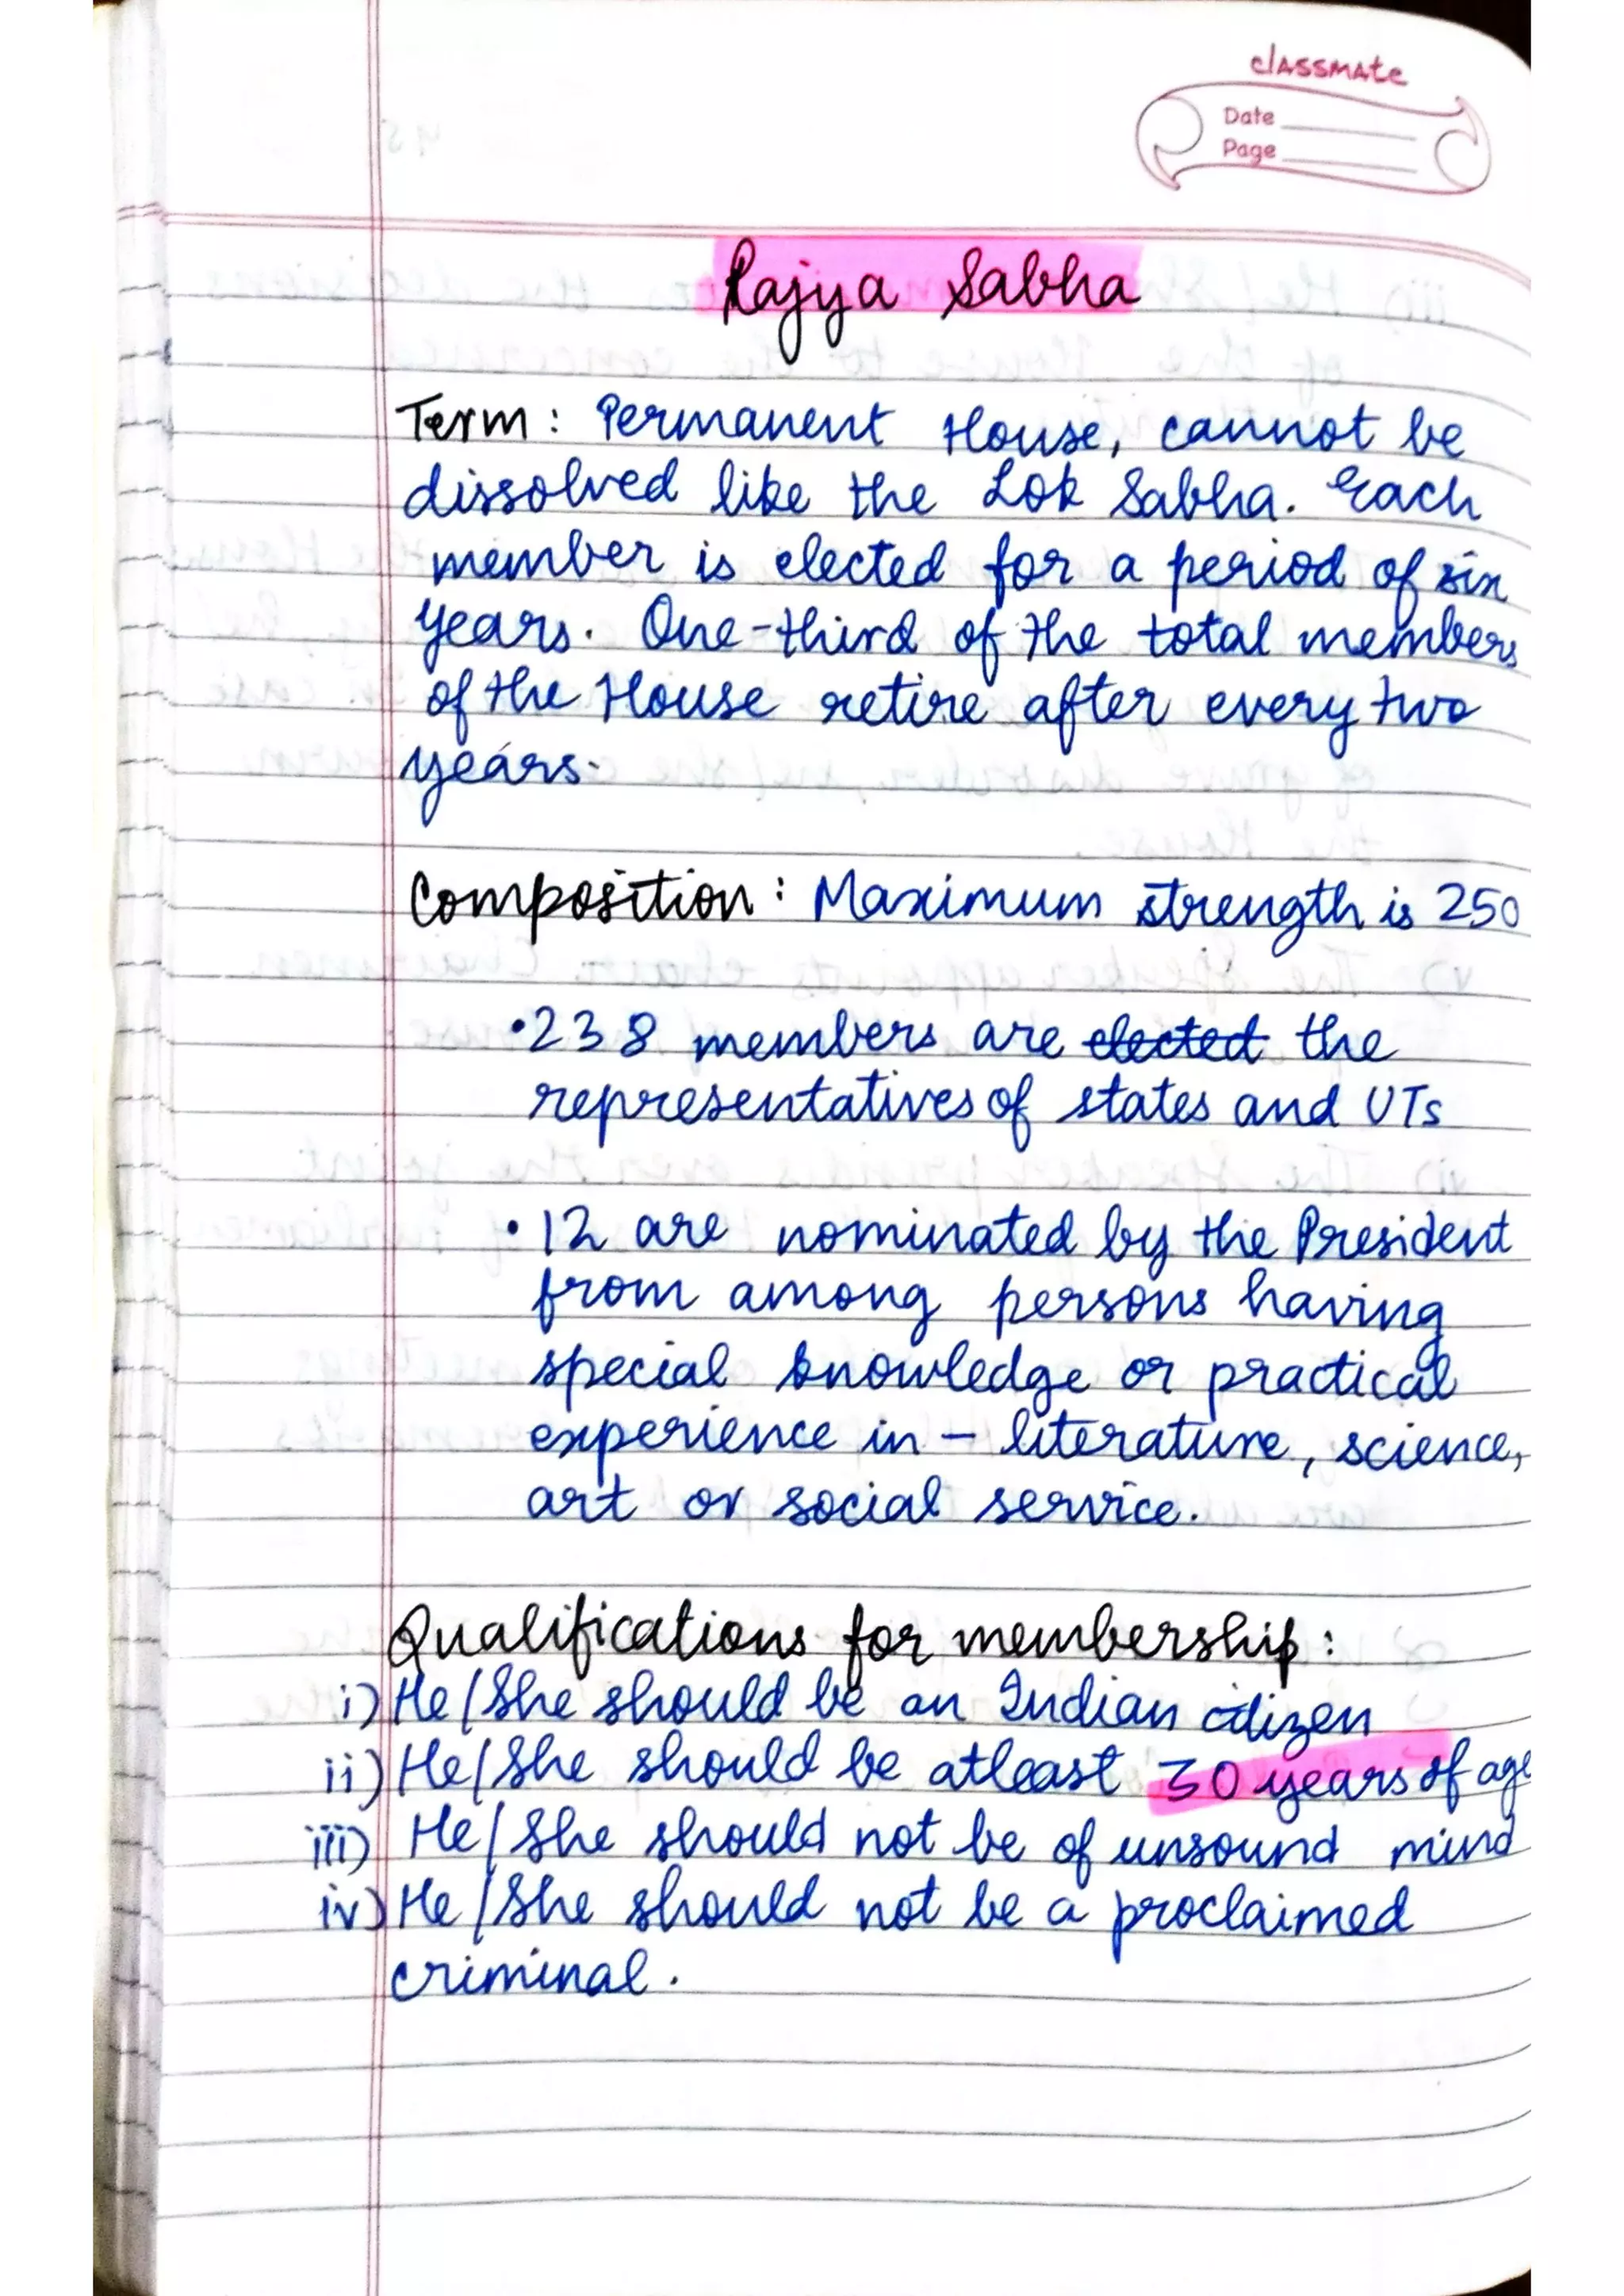 classmate
Date
Page
Rajya Sabha
Term : Permanent House, cannot be
dissolved like the Lok Sabha. Each
member is elected for a period of six
years. One-third of the total members
of the House retire after every two
years.
Composition : Maximum strength is 250
•238 members are elected the
representatives of states and UTs
• 12 are nominated by the President
from among persons having
special knowledge or practical
experience in - literature, science,
art or social service.
Qualifications for membership :
i) He/She should be an Indian citizen
ii) He/She should be atleast 30 years of age
iii) He/She should not be of unsound mind
iv) He/She should not be a proclaimed
criminal.